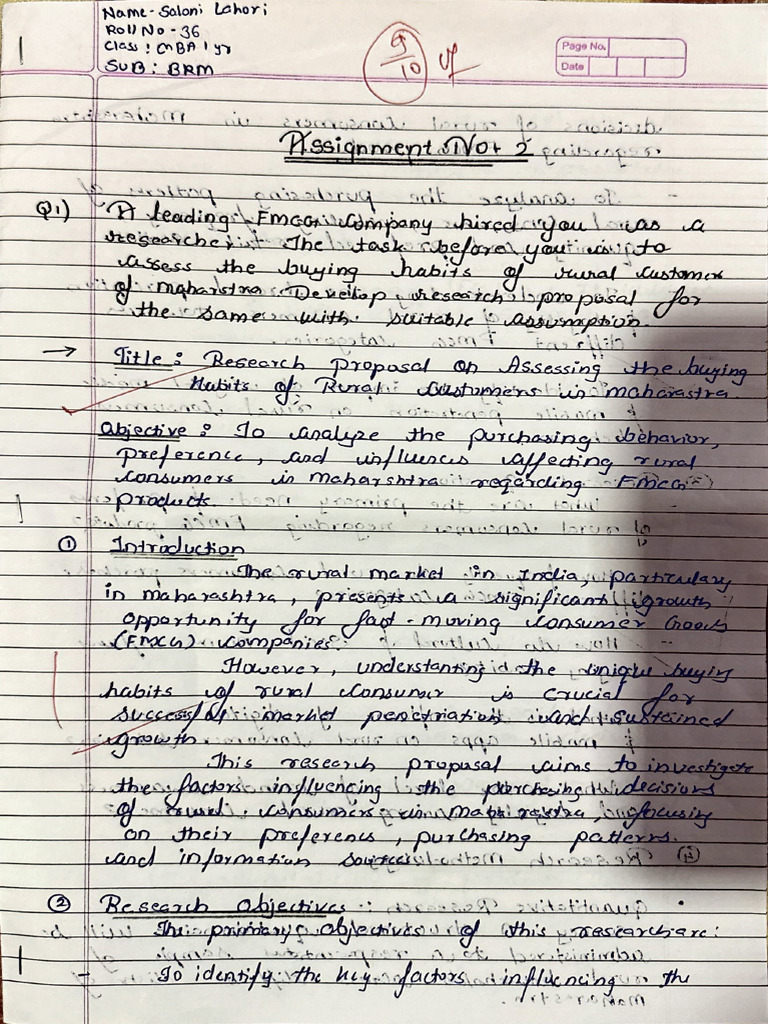 Name - Saloni Lahori
Roll No - 36
Class : MBA I yr
SUB : BRM
9/10
Page No.
Date
Assignment No. 2
Q1) A leading FMCG Company hired you as a
researcher. The task before you is to
assess the buying habits of rural customer
of maharstra. Develop research proposal for
the same with suitable assumption.
→ Title : Research proposal on Assessing the buying
Habits of Rural Customers in maharastra.
Objective : To analyze the purchasing behavior,
preference, and influences affecting rural
consumers in maharshtra regarding FMCG
products.
① Introduction
The rural market in India, particulary
in maharashtra, presents a significant growth
opportunity for fast-moving Consumer Goods
(FMCG) companies.
However, understanding the unique buying
habits of rural consumer is crucial for
successful market penetration and sustained
growth
This research proposal aims to investigate
the factors influencing the purchasing decisions
of rural consumers in maharastra, focusing
on their preference, purchasing patterns
and information sources.
② Research Objectives :
The primary objectives of this research are:
- To identify the key factors influencing the